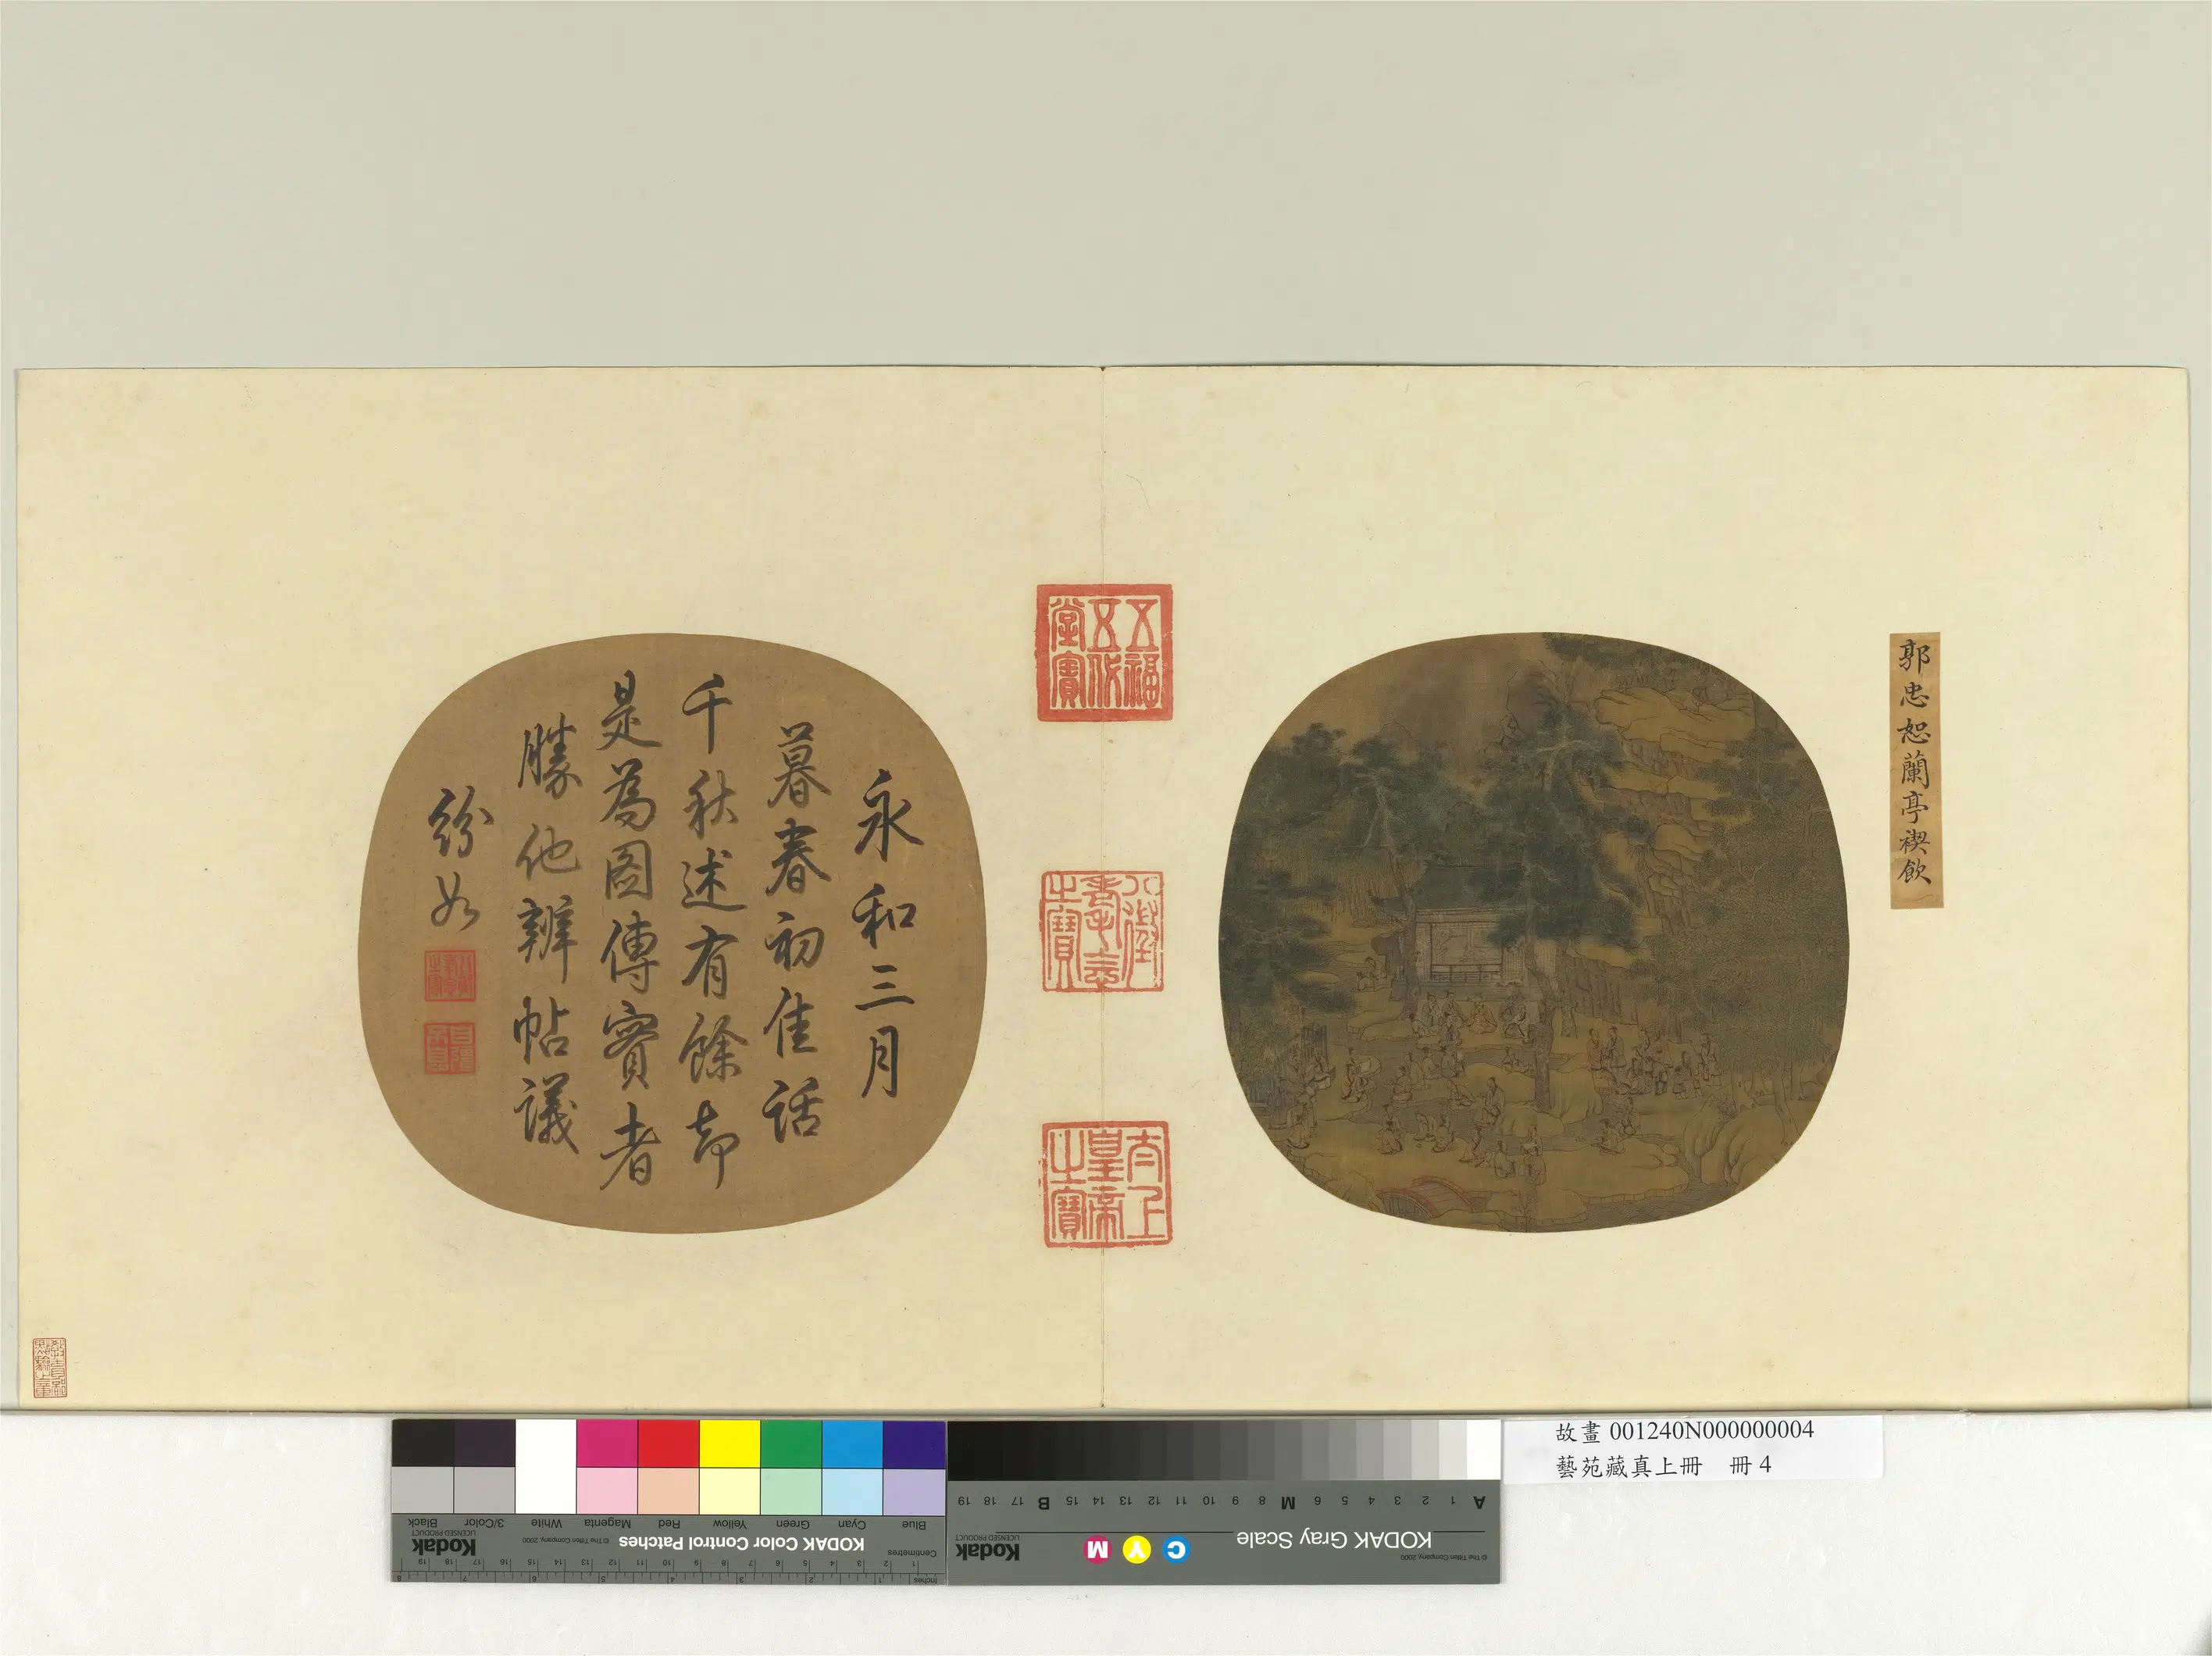 郭忠恕蘭亭禊飲
五福
五代
堂寶
八徵
耄念
之寶
太上
皇帝
之寶
永和三月
暮春初佳話
千秋述有餘却
是為圖傳實者
勝他辨帖議
紛如
八徵
耄念
之寶
自彊
不息
故畫 001240N000000004
藝苑藏真上冊 冊 4
KODAK Gray Scale
© The Tiffen Company, 2000
Kodak
LICENSED PRODUCT
C Y M
A 1 2 3 4 5 6 M 8 9 10 11 12 13 14 15 B 17 18 19
KODAK Color Control Patches
© The Tiffen Company, 2000
Kodak
LICENSED PRODUCT
Blue Cyan Green Yellow Red Magenta White 3/Color Black
Centimetres
1 2 3 4 5 6 7 8 9 10 11 12 13 14 15 16 17 18 19
Inches
1 2 3 4 5 6 7 8